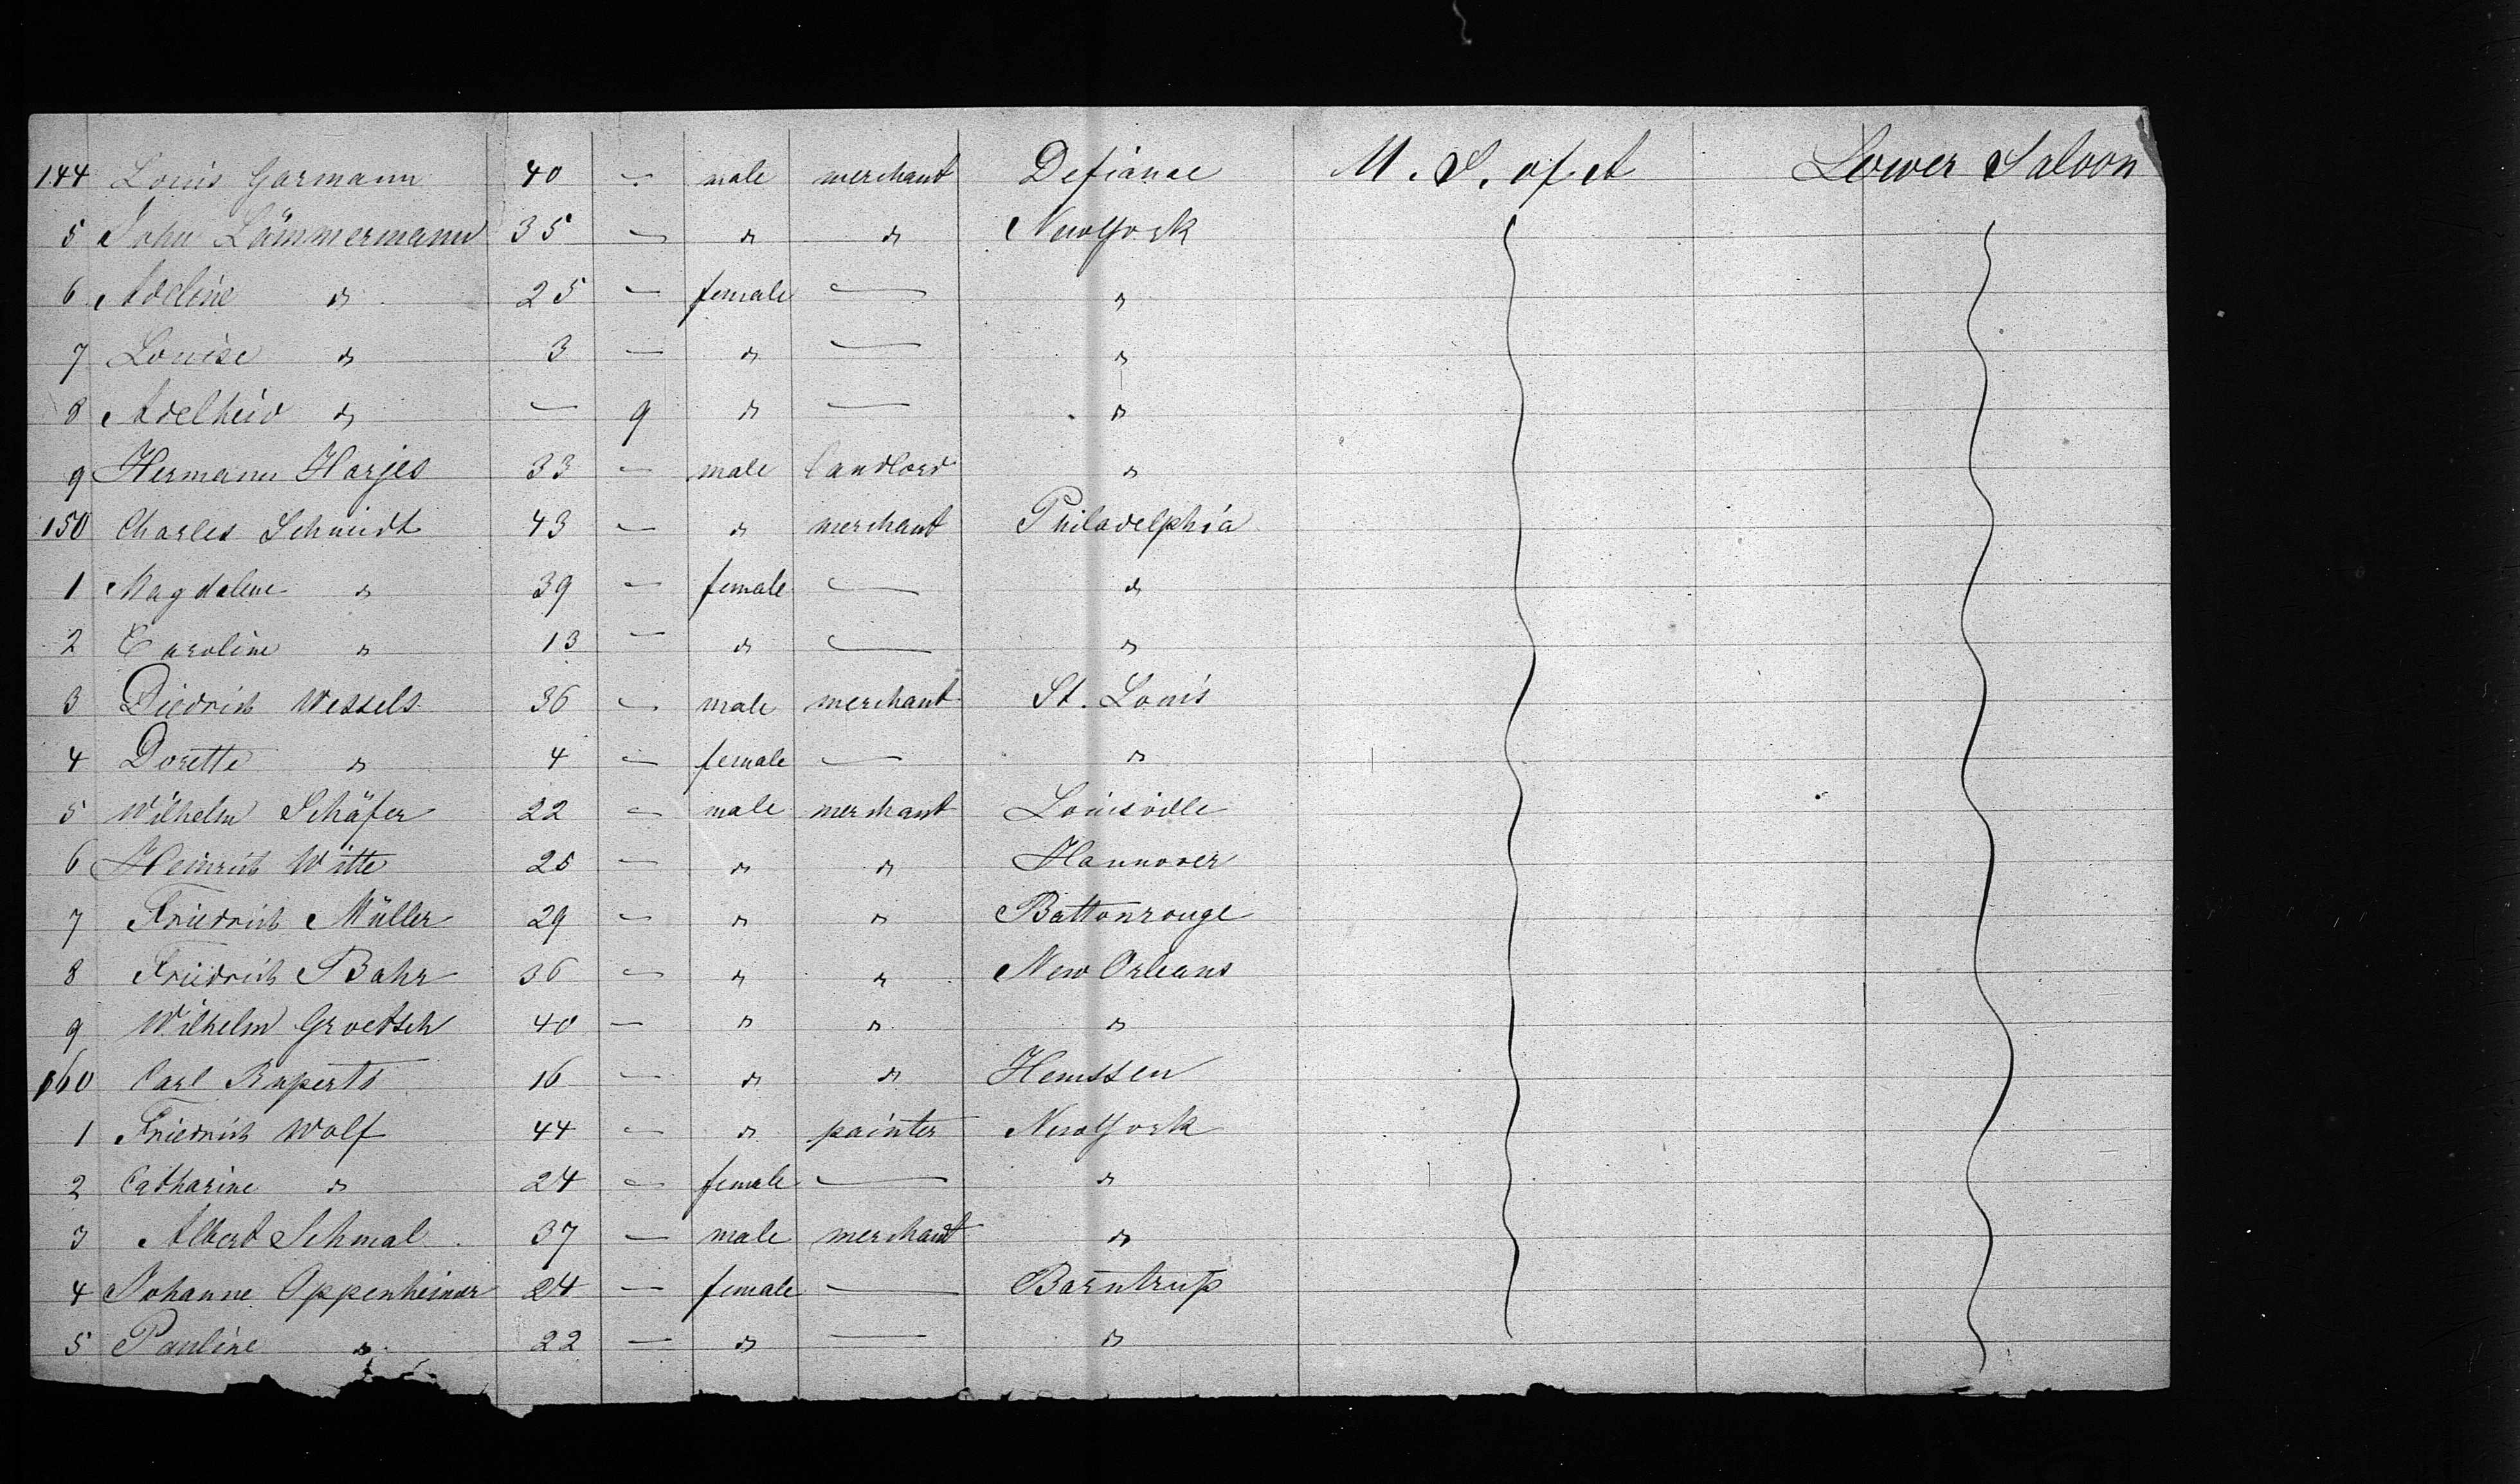 144 Louis Garmann 40 — male merchant Defiance U. S. of A Lower Saloon
5 John Lämmermann 35 — " " New York
6 Adeline " 25 — female — "
7 Louise " 3 — " — "
8 Adelheid " — 9 " — "
9 Hermann Harjes 33 — male landlord "
150 Charles Schmidt 43 — " merchant Philadelphia
1 Magdalene " 39 — female — "
2 Caroline " 13 — " — "
3 Diedrich Wessels 36 — male merchant St. Louis
4 Dorette " 4 — female — "
5 Wilhelm Schäfer 22 — male merchant Louisville
6 Heinrich Witte 25 — " " Hannover
7 Friedrich Müller 29 — " " Battonrouge
8 Friedrich Bahr 36 — " " New Orleans
9 Wilhelm Groetsch 40 — " " "
160 Carl Ruperts 16 — " " Hemssen
1 Friedrich Wolf 44 — " painter New York
2 Catharine " 24 — female — "
3 Albert Schmal 37 — male merchant "
4 Johanne Oppenheimer 24 — female — Barntrup
5 Pauline " 22 — " — "